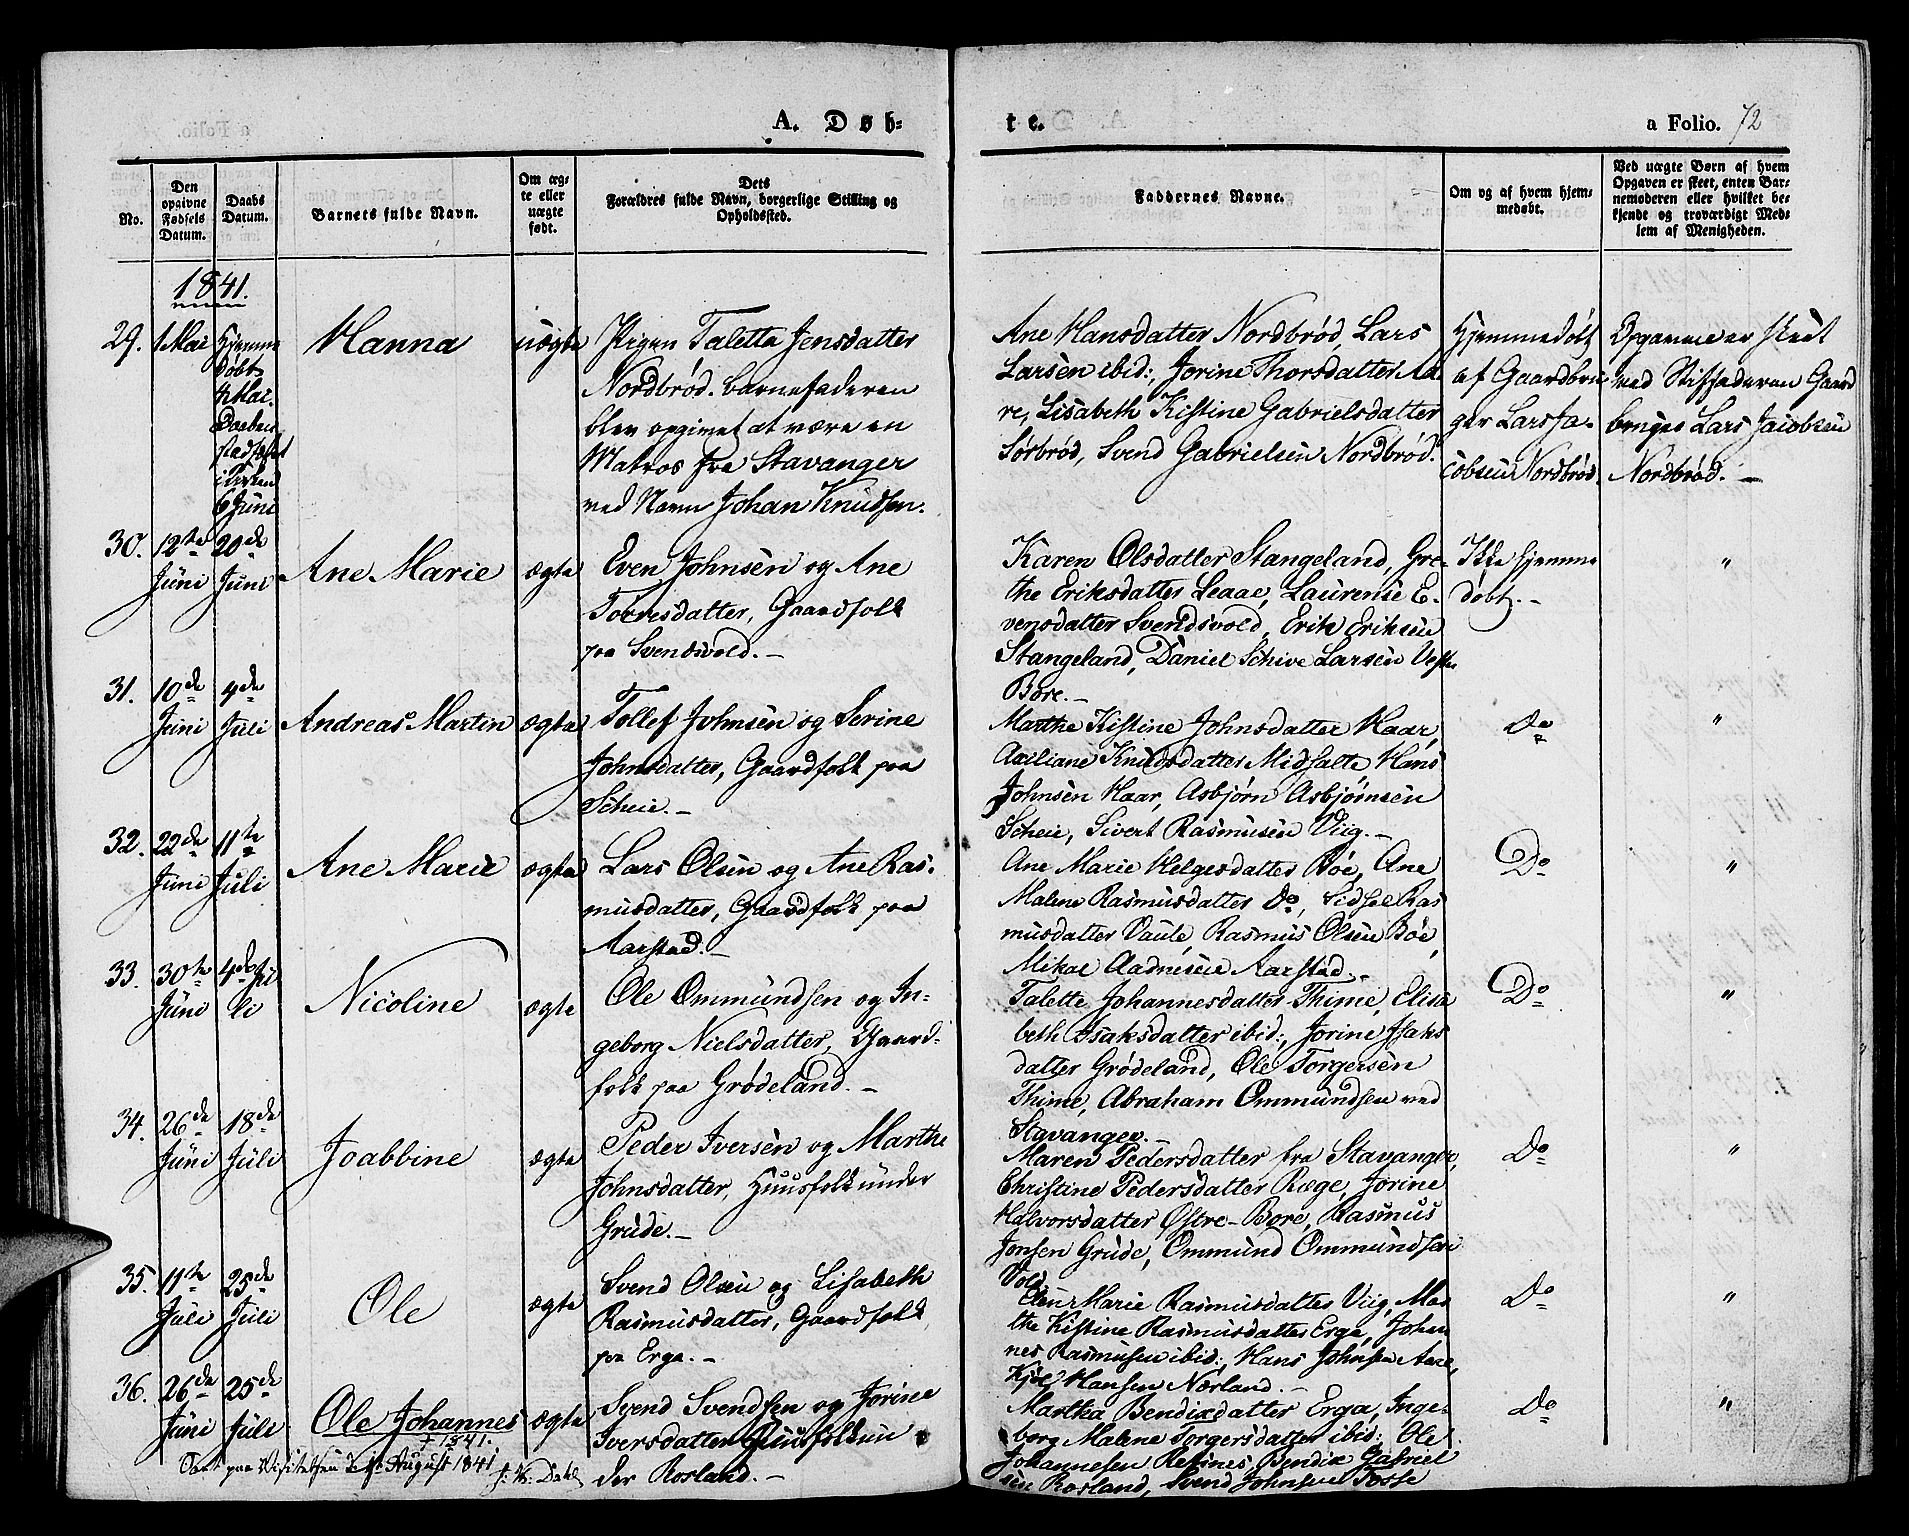 A. Døb-
te.
a Folio. 72
No.
Den
opgivne
Fødsels
Datum.
Daabs
Datum.
Barnets fulde Navn.
Om æg-
te eller
uægte
født.
Dets
Forældres fulde Navn, borgerlige Stilling og
Opholdssted.
Faddernes Navne.
Om og af hvem hjem-
medøbt.
Ved uægte Børn af hvem
Opgaven er skeet, enten Bar-
nemoderen eller hvilket be-
kjendt og troværdigt Med-
lem af Menigheden.
1841.
29.
1 Mai
Hjemme
døbt
4 Mai.
Daaben
stadfæstet
i Kirken
6 Juni
Hanna
uægte
Pigen Taletta Jensdatter
Nordbrød. Barnefaderen
blev opgivet at være en
Matros fra Stavanger
ved Navn Johan Knudsen.
Ane Hansdatter Nordbrød, Lars
Larsen ibid:, Jorine Thorsdatter Aa-
re, Lisabeth Kistine Gabrielsdatter
Sørbrød, Svend Gabrielsen Nordbrød.
Hjemmedøbt
af Gaardbru-
ger Lars Ja-
cobsen Nordbrød.
Opgaven er skeet
ved Stiffaderen Gaard
bruger Lars Jacobsen
Nordbrød. —
30.
12te
Juni
20de
Juni
Ane Marie
ægte
Even Johnsen og Ane
Torresdatter, Gaardfolk
paa Svendsvold. —
Karen Olsdatter Stangeland, Gre-
the Eriksdatter Leaae, Laurense E-
vensdatter Svendsvold, Erik Eriksen
Stangeland, Daniel Schive Larsen Vestre
Bore. —
Ikke hjemme
døbt. —
"
31.
10de
Juni
4de
Juli
Andreas Martin
ægte
Tollef Johnsen og Serine
Johnsdatter, Gaardfolk paa
Scheie. —
Marthe Kistine Johnsdatter Haar,
Axiliane Knudsdatter Midsalte Hans
Johnsen Haar, Asbjørn Asbjørnsen
Scheie, Sivert Rasmusen Viig. —
Do
"
32.
22de
Juni
11te
Juli
Ane Marie
ægte
Lars Olsen og Ane Ras-
musdatter, Gaardfolk paa
Aarstad. —
Ane Marie Helgesdatter Bøe, Ane
Malene Rasmusdatter Do, Sidsel Ras
musdatter Vaule, Rasmus Olsen Bøe,
Mikal Aadnesen Aarstad. —
Do
"
33.
30te
Juni
4de Ju
li
Nicoline
ægte
Ole Ommundsen og In-
geborg Nielsdatter, Gaard-
folk paa Grødeland. —
Talette Johannesdatter Thime, Elisa
beth Isaksdatter ibid:, Jorine Isaks
datter Grødeland, Ole Torgersen
Thime, Abraham Ommundsen ved
Stavanger. —
Do
"
34.
26de
Juni
18de
Juli
Joabbine
ægte
Peder Iversen og Marthe
Johnsdatter, Huusfolk under
Grude. —
Maren Pedersdatter fra Stavanger,
Christine Pedersdatter Ræge, Jorine
Halvorsdatter Østre-Bore, Rasmus
Jonsen Grude, Ommund Ommundsen
Vold.
Do
"
35.
11te
Juli
25de
Juli
Ole
ægte
Svend Olsen og Lisabeth
Rasmusdatter, Gaardfolk
paa Erga. —
Elen Marie Rasmusdatter Viig, Mar
the Kistine Rasmusdatter Erga, Johan
nes Rasmusen ibid:, Hans Johnsen Aare,
Kjel Hansen Nærland. —
Do
"
36.
26de
Juni
25de
Juli
Ole Johannes
† 1841.
ægte
Svend Svendsen og Jorine
Iversdatter Huusfolk un
der Rosland. —
Martha Bendixdatter Erga, Inge-
borg Malene Torgersdatter ibid: Ole
Johannesen Refsnes, Bendix Gabriel
sen Rosland, Svend Johnsen Tosse
Do
"
Seet paa Visitatsen d. August 1841